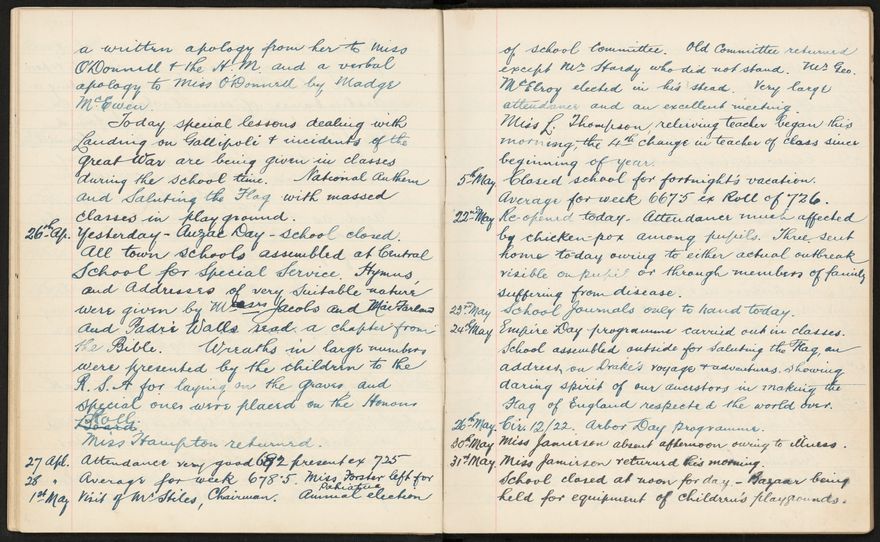 a written apology from her to Miss
O'Donnell & the H.M. and a verbal
apology to Miss O'Donnell by Madge
McEwen.
Today special lessons dealing with
Landing on Gallipoli & incidents of the
great War are being given in classes
during the school time. National Anthem
and Saluting the Flag with massed
classes in playground.
26th Ap. Yesterday - Anzac Day - school closed.
All town schools assembled at Central
School for Special Service. Hymns
and Addresses of very suitable nature
were given by Messrs Jacobs and MacFarlane
and Padre Walls read a chapter from
the Bible. Wreaths in large numbers
were presented by the children to the
R.S.A for laying on the graves and
special ones were placed on the Honours
Roll
Board
Miss Hampton returned.
27 Apl. Attendance very good 692 present ex 725
28 " Average for week 678.5. Miss Forster left for
Pahiatua
1st May Visit of Mr Stiles, Chairman. Annual election
of School Committee. Old Committee returned
except Mr Hardy who did not stand. Mr Geo.
McElroy elected in his stead. Very large
attendance and an excellent meeting.
Miss L. Thompson, relieving teacher began this
morning, the 4th change in teacher of class since
beginning of year.
5th May Closed school for fortnight's vacation.
Average for week 667.5 ex Roll of 726.
22nd May Re-opened today. Attendance much affected
by chicken-pox among pupils. Three sent
home today owing to either actual outbreak
visible on pupil or through members of family
suffering from disease.
23rd May School Journals only to hand today.
24th May Empire Day programme carried out in classes.
School assembled outside for saluting the Flag, an
address on Drake's voyage & adventures, showing
daring spirit of our ancestors in making the
Flag of England respected the world over.
26th May. Cir. 12/22. Arbor Day programme.
30th May Miss Jamieson absent afternoon owing to illness.
31st May Miss Jamieson returned this morning
School closed at noon for day, - Bazaar being
held for equipment of children's playgrounds.